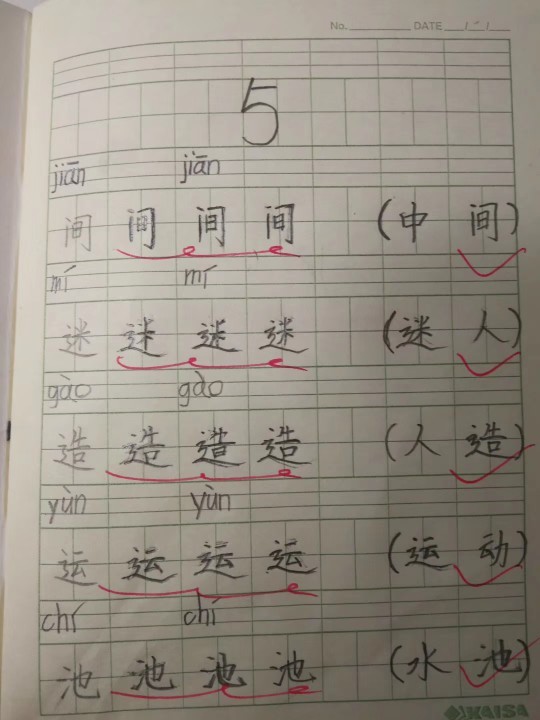 No. DATE / /
5
jiān jiān
间 间 间 间 (中 间)
mí mí
迷 迷 迷 迷 (迷 人)
gào gào
造 造 造 造 (人 造)
yùn yùn
运 运 运 运 (运 动)
chí chí
池 池 池 池 (水 池)
KAISA